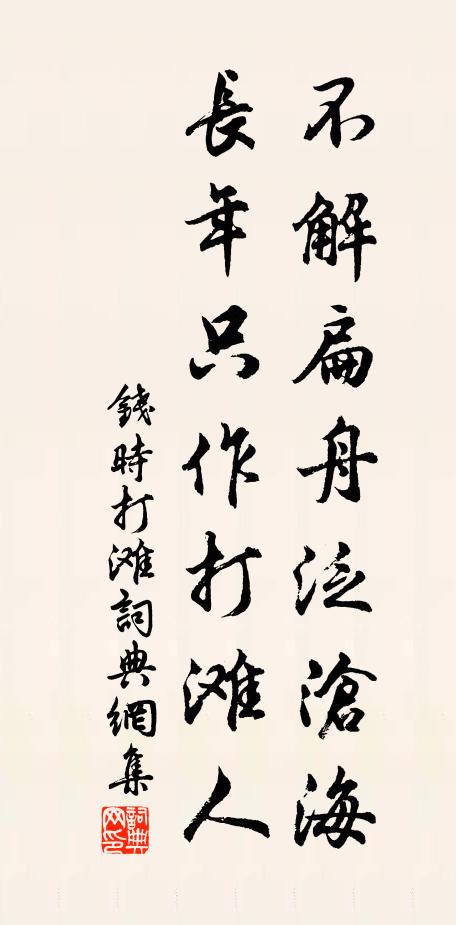 不解扁舟泛滄海
長年只作打滩人
錢時打滩詞典網集
詞典網印